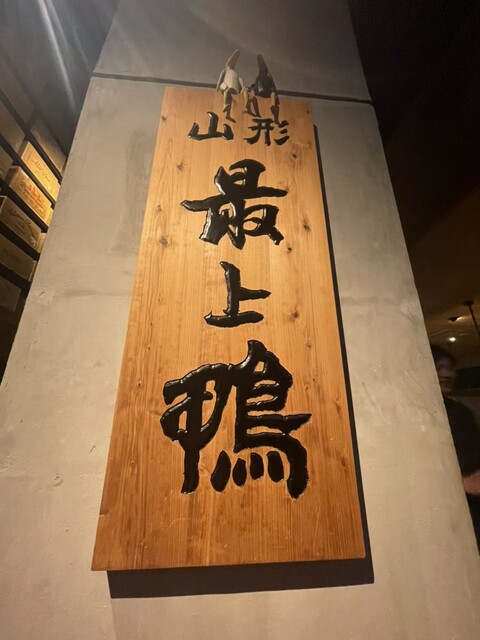 山形
最上鴨